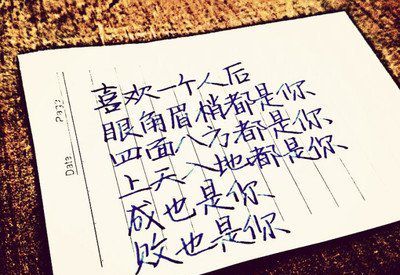 喜欢一个人后
眼角眉梢都是你、
四面八方都是你、
上天入地都是你、
成也是你、
败也是你、
Data
Page